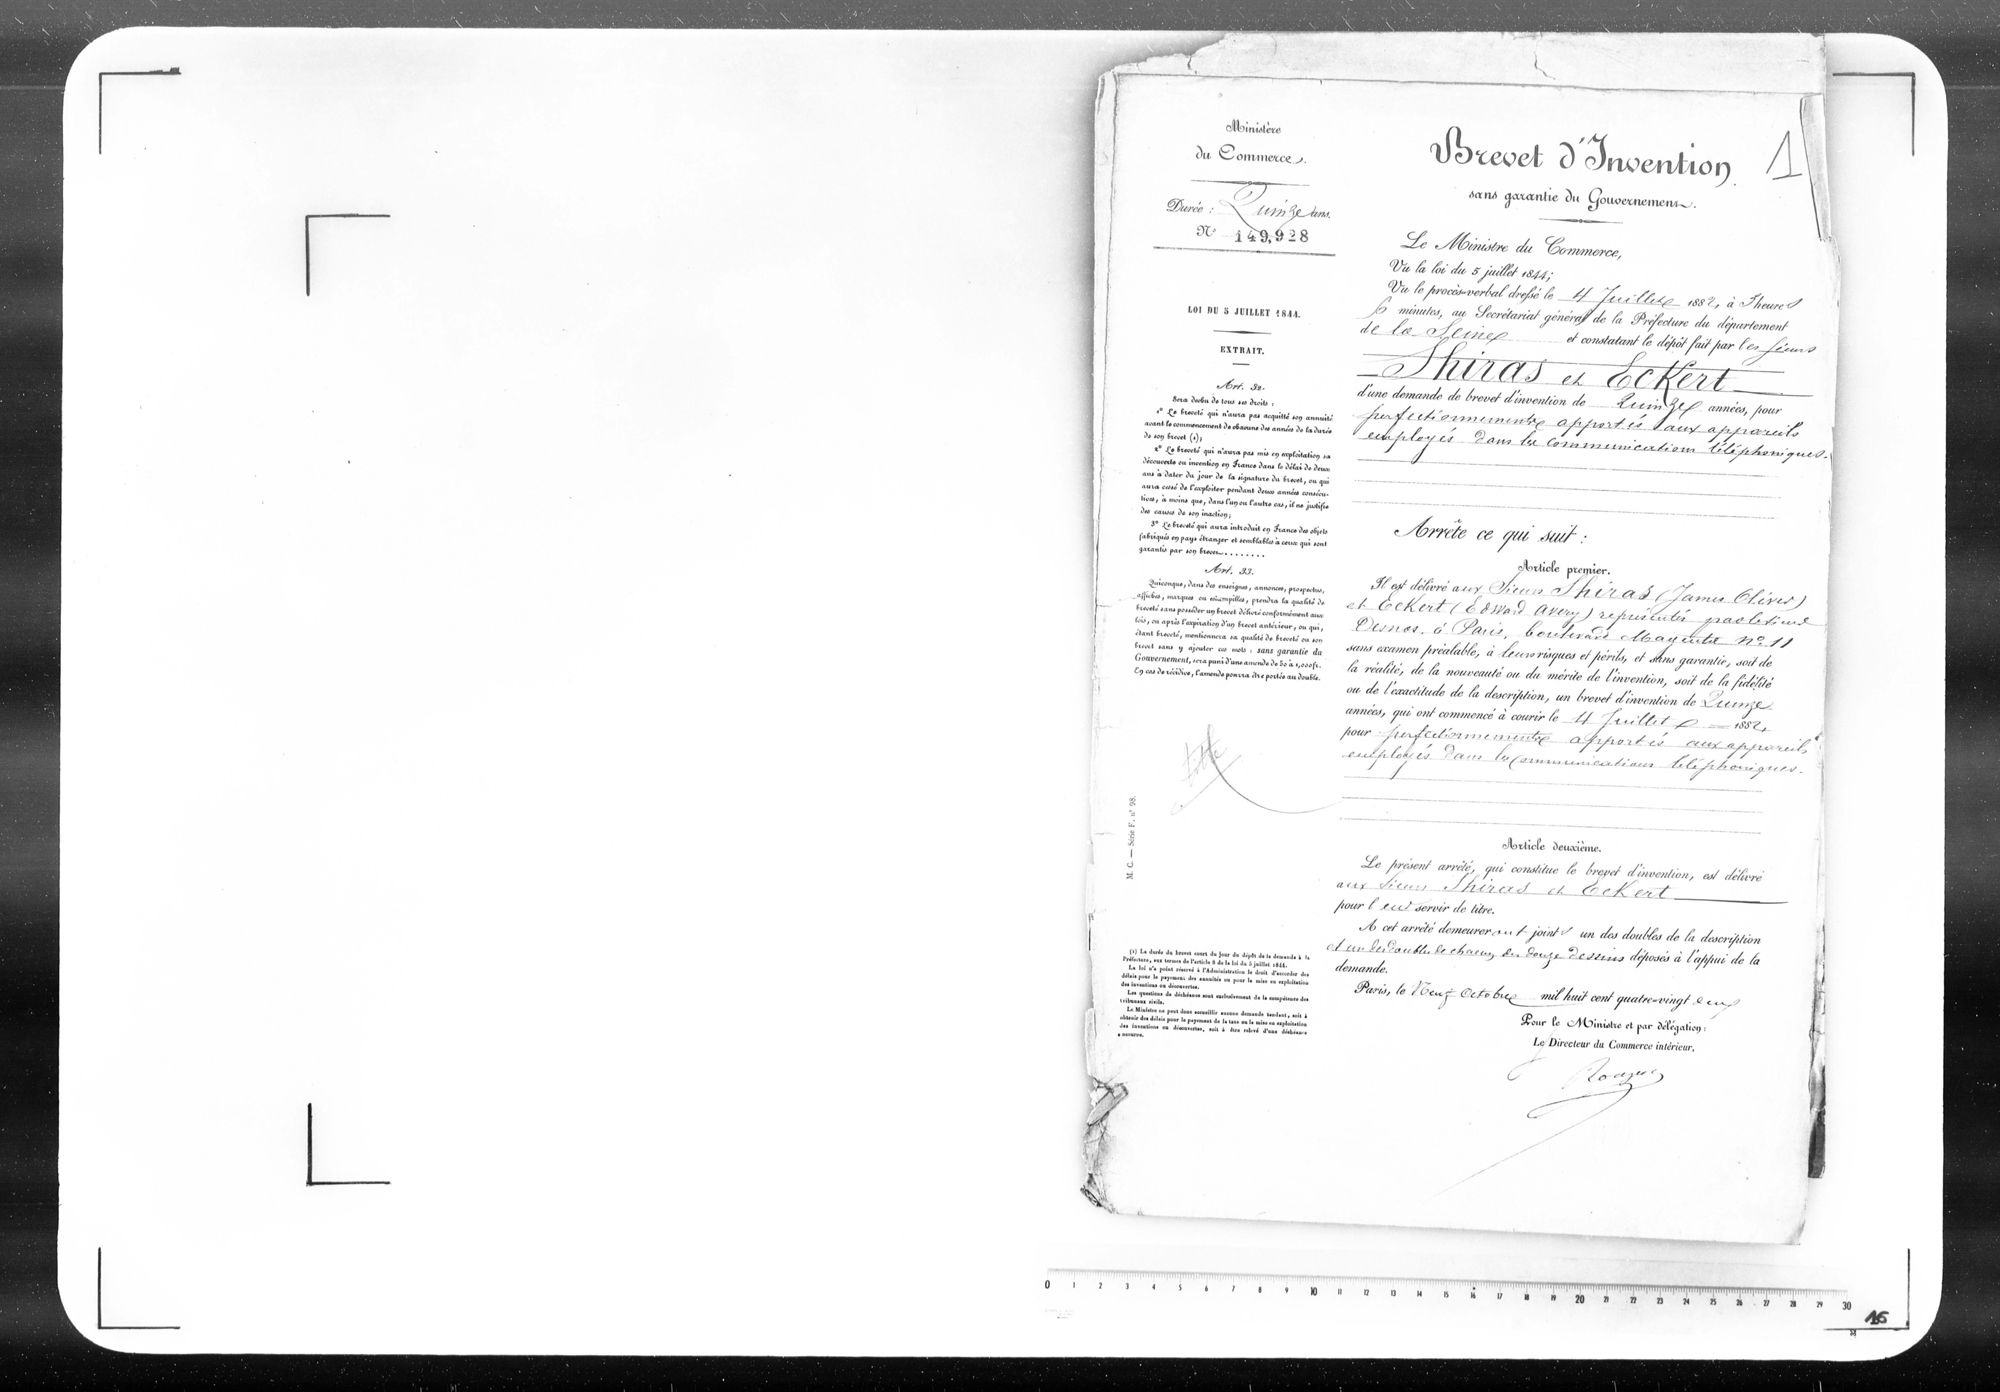 Ministère
du Commerce.
Durée : Quinze ans.
N° 149,928
LOI DU 5 JUILLET 1844.
EXTRAIT.
Art. 32.
Sera déchu de tous ses droits :
1° Le breveté qui n'aura pas acquitté son annuité
avant le commencement de chacune des années de la durée
de son brevet (1);
2° Le breveté qui n'aura pas mis en exploitation sa
découverte ou invention en France dans le délai de deux
ans à dater du jour de la signature du brevet, ou qui
aura cessé de l'exploiter pendant deux années consécu-
tives, à moins que, dans l'un ou l'autre cas, il ne justifie
des causes de son inaction;
3° Le breveté qui aura introduit en France des objets
fabriqués en pays étranger et semblables à ceux qui sont
garantis par son brevet........
Art. 33.
Quiconque, dans des enseignes, annonces, prospectus,
affiches, marques ou estampilles, prendra la qualité de
breveté sans posséder un brevet délivré conformément aux
lois, ou après l'expiration d'un brevet antérieur, ou qui,
étant breveté, mentionnera sa qualité de breveté ou son
brevet sans y ajouter ces mots : sans garantie du
Gouvernement, sera puni d'une amende de 50 à 1,000 fr.
En cas de récidive, l'amende pourra être portée au double.
M. C. — Série F. n° 98.
(1) La durée du brevet court du jour du dépôt de la demande à la
Préfecture, aux termes de l'article 8 de la loi du 5 juillet 1844.
La loi n'a point réservé à l'Administration le droit d'accorder des
délais pour le payement des annuités ou pour la mise en exploitation
des inventions ou découvertes.
Les questions de déchéance sont exclusivement de la compétence des
tribunaux civils.
Le Ministre ne peut donc accueillir aucune demande tendant, soit à
obtenir des délais pour le payement de la taxe ou la mise en exploitation
des inventions ou découvertes, soit à être relevé d'une déchéance
encourue.
Brevet d'Invention
1
sans garantie du Gouvernement.
Le Ministre du Commerce,
Vu la loi du 5 juillet 1844;
Vu le procès-verbal dressé le 4 Juillet 1882, à 3 heures
6 minutes, au Secrétariat général de la Préfecture du département
de la Seine et constatant le dépôt fait par les sieurs
Shiras et Eckert
d'une demande de brevet d'invention de Quinze années, pour
perfectionnements apportés aux appareils
employés dans les communications téléphoniques.
Arrête ce qui suit :
Article premier.
Il est délivré aux Sieurs Shiras (James Oliver)
et Eckert (Edward Avery) représentés par le sieur
Desnos, à Paris, boulevard Magenta n° 11
sans examen préalable, à leurs risques et périls, et sans garantie, soit de
la réalité, de la nouveauté ou du mérite de l'invention, soit de la fidélité
ou de l'exactitude de la description, un brevet d'invention de Quinze
années, qui ont commencé à courir le 4 Juillet 1882,
pour perfectionnements apportés aux appareils
employés dans les communications téléphoniques.
Article deuxième.
Le présent arrêté, qui constitue le brevet d'invention, est délivré
aux sieurs Shiras et Eckert
pour leur servir de titre.
A cet arrêté demeureront joints un des doubles de la description
et un des doubles de chacun des douze dessins déposés à l'appui de la
demande.
Paris, le Neuf Octobre mil huit cent quatre-vingt deux
Pour le Ministre et par délégation :
Le Directeur du Commerce intérieur,
0 1 2 3 4 5 6 7 8 9 10 11 12 13 14 15 16 17 18 19 20 21 22 23 24 25 26 27 28 29 30
16